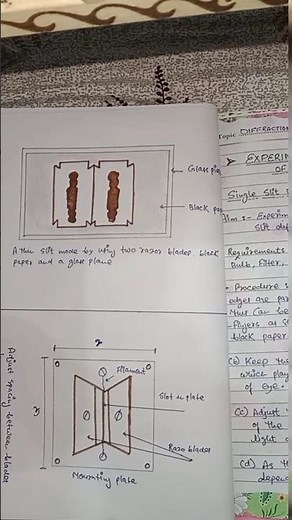 Glass
Black
A thin slit made by using two razor blades black
paper and a glass plane
Filament
Slot in plate
Razo blades
Mounting plate
Adjust spacing between blades
Topic DIFFRACTION
EXPERIM
OF
Single Slit
Aim :- Experim
slit
Requirements
Bulb, Filter,
Procedure
edges are par
Thus can be
fingers as
black paper
(b) Keep the
which play
of eye.
(c) Adjust
of the
light
(d) As
depen